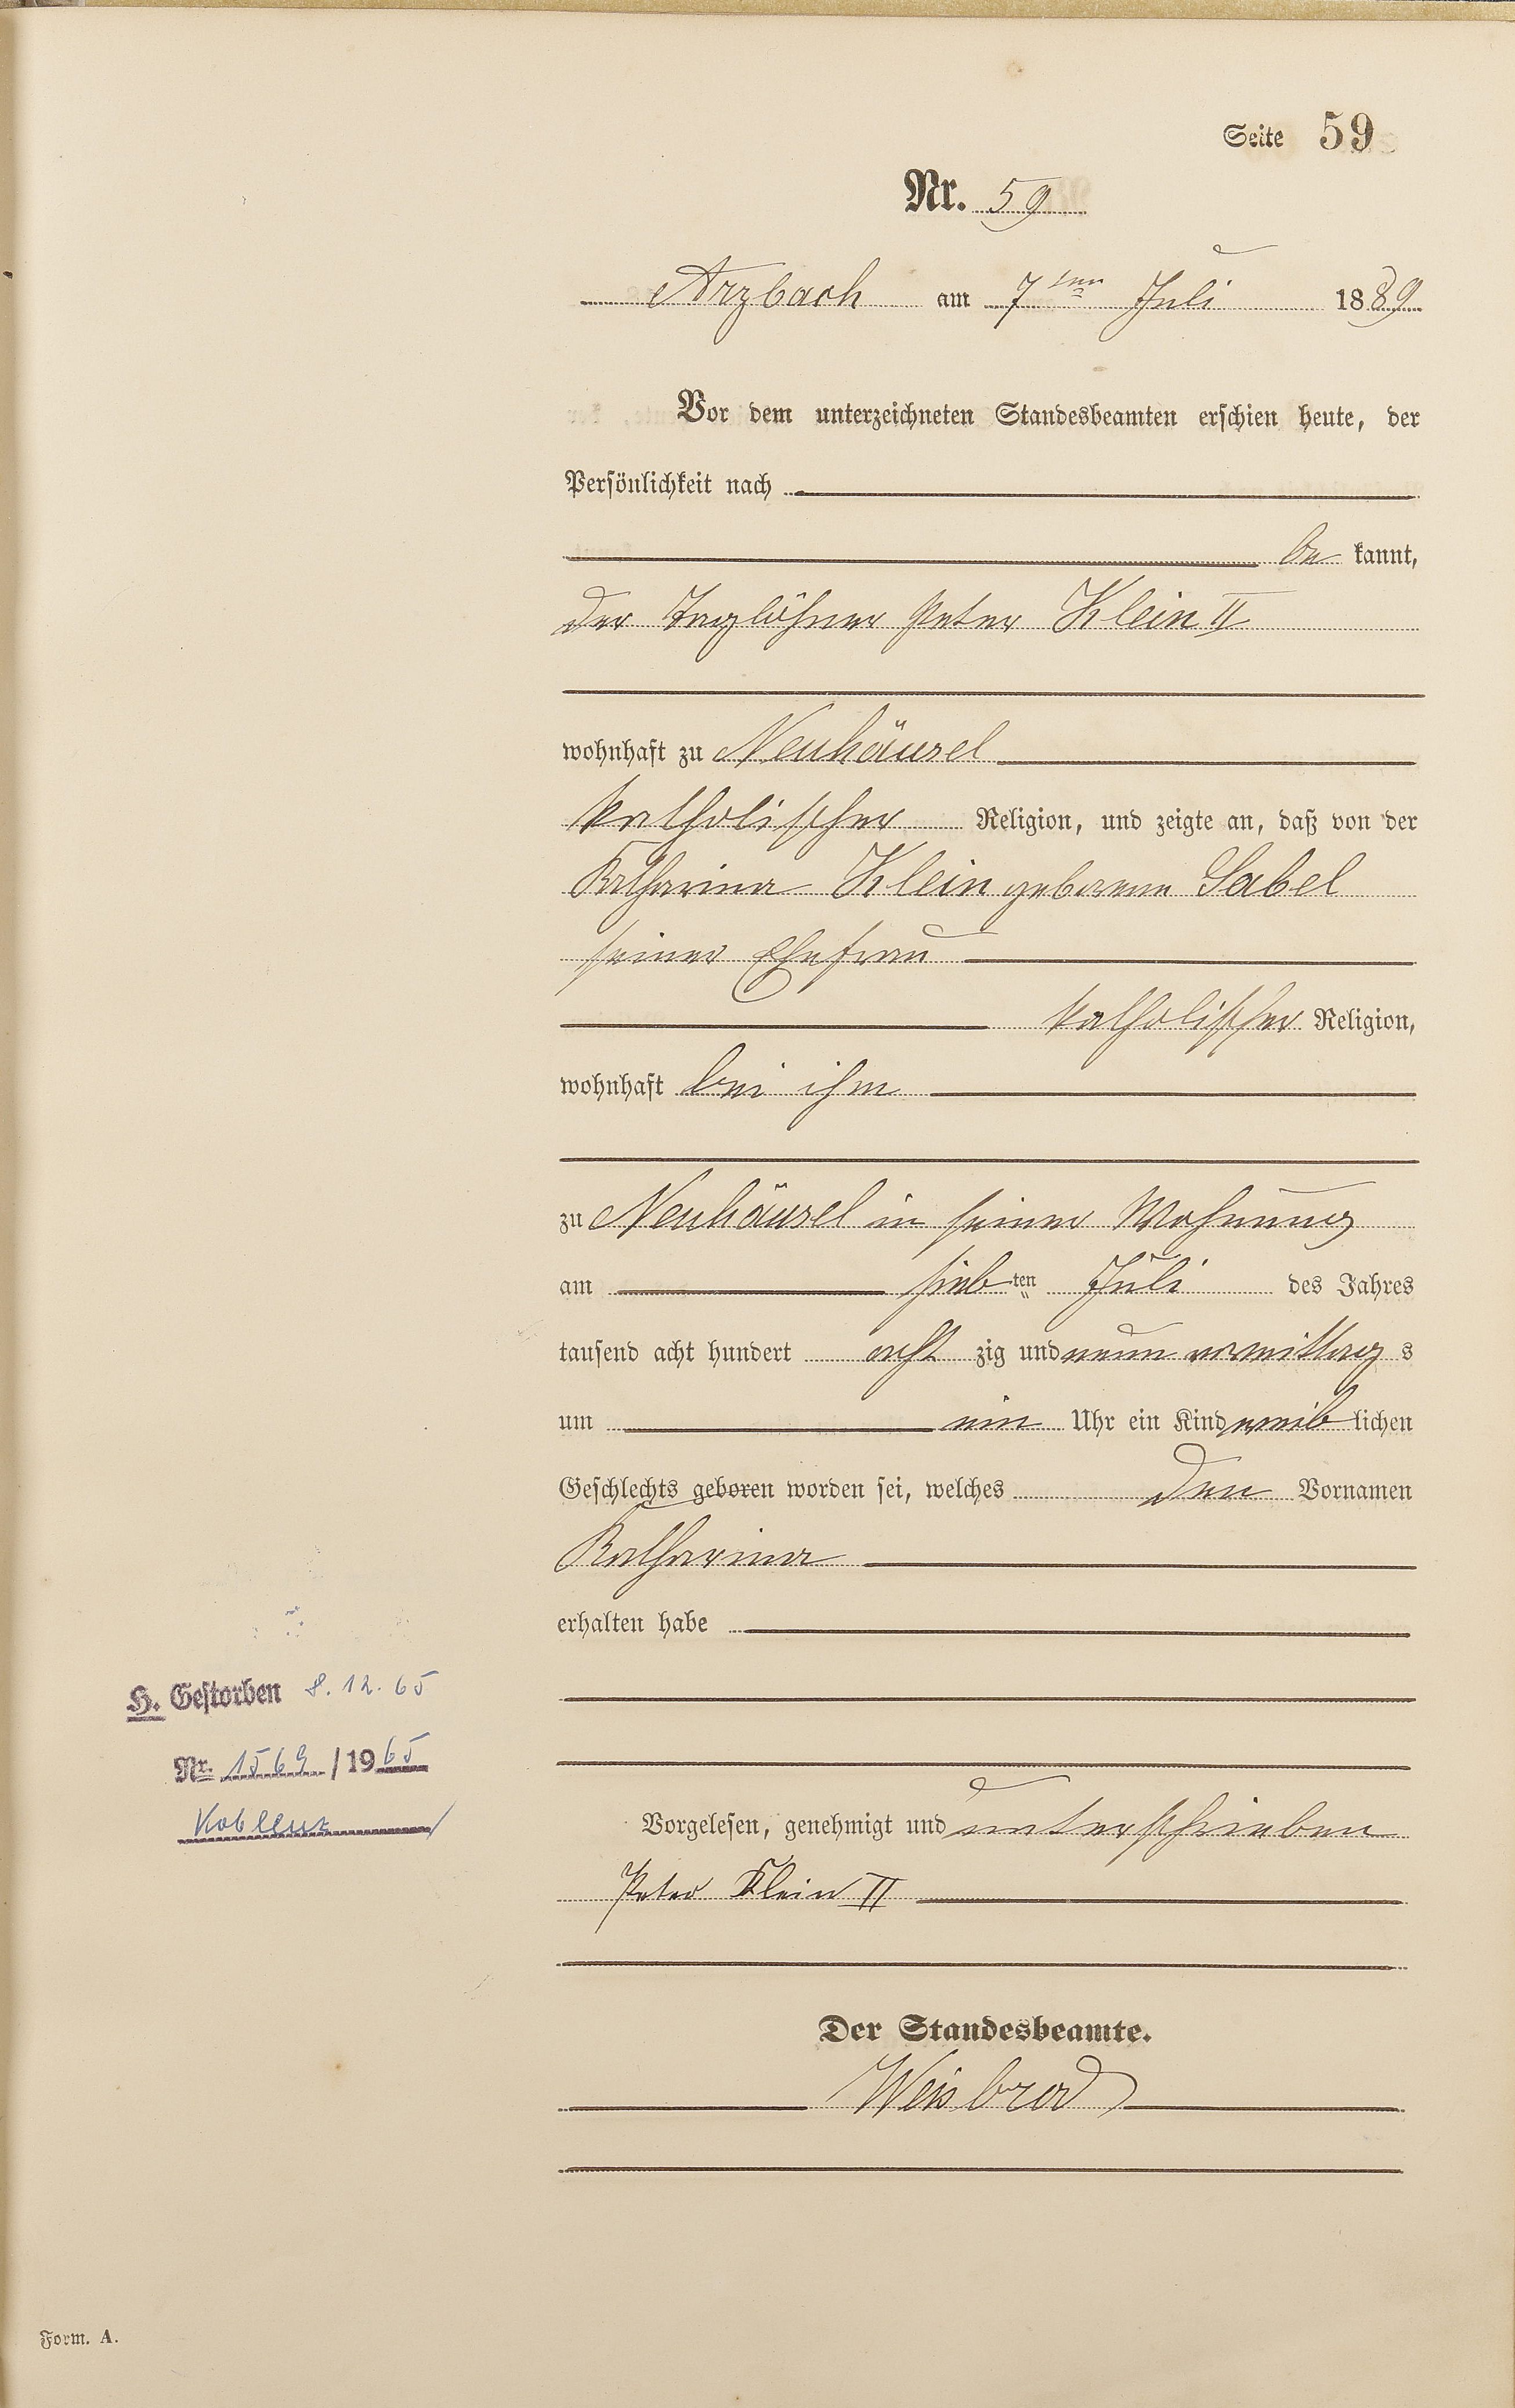 Seite 59
Nr. 59
Arzbach am 7ten Juli 1889
Vor dem unterzeichneten Standesbeamten erschien heute, der
Persönlichkeit nach
be kannt,
der Taglöhner Peter Klein II
wohnhaft zu Neuhäusel
katholischer Religion, und zeigte an, daß von der
Katharina Klein geborene Sabel
seiner Ehefrau
katholischer Religion,
wohnhaft bei ihm
zu Neuhäusel in seiner Wohnung
am siebten Juli des Jahres
tausend acht hundert acht zig und neun vormittag s
um ein Uhr ein Kind weib lichen
Geschlechts geboren worden sei, welches den Vornamen
Katharina
erhalten habe
H. Gestorben 8.12.65
Nr. 1569 / 1965
Koblenz
Vorgelesen, genehmigt und unterschrieben
Peter Klein II
Der Standesbeamte.
Weisbrod
Form. A.